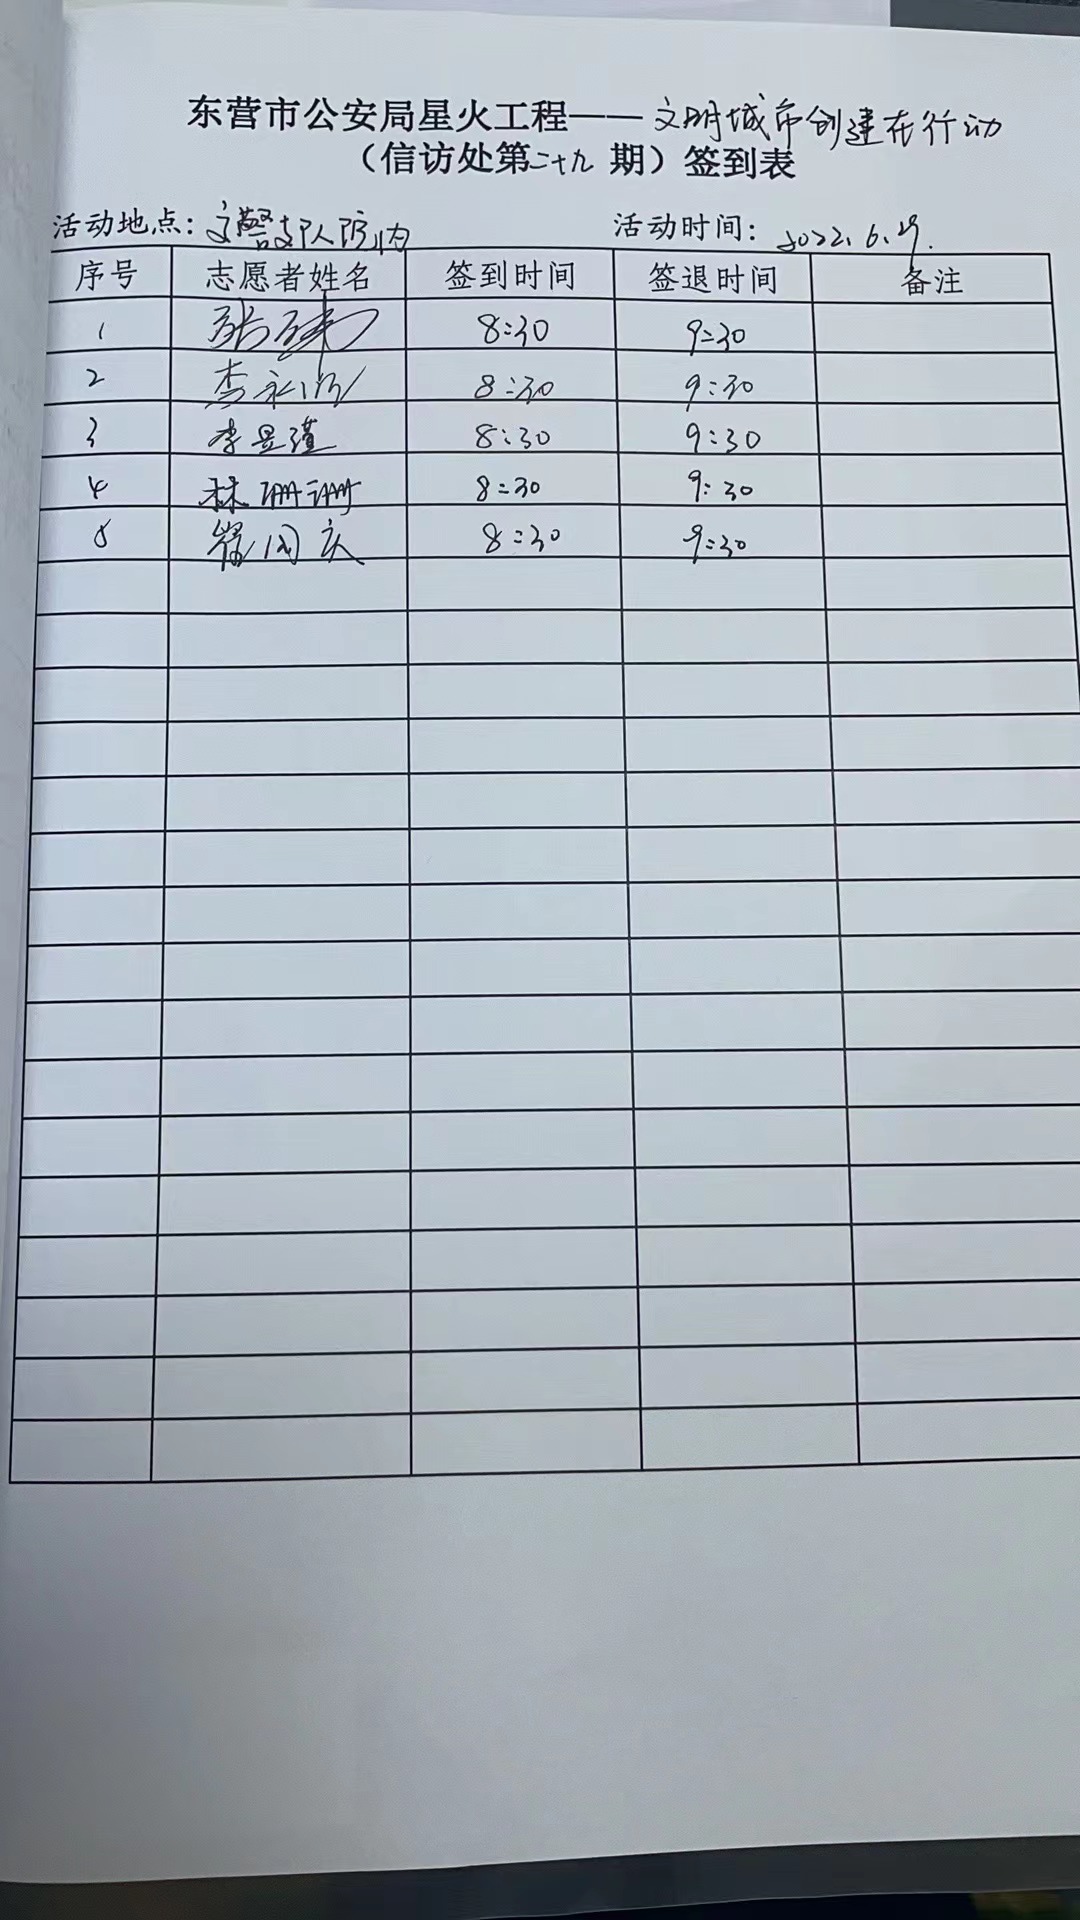 东营市公安局星火工程——文明城市创建在行动
（信访处第二十九期）签到表
活动地点：交警支队院内 活动时间：2022.6.29.
序号 志愿者姓名 签到时间 签退时间 备注
1 8:30 9:30
2 李 8:30 9:30
3 李昱瑾 8:30 9:30
4 林珊珊 8:30 9:30
5 国庆 8:30 9:30